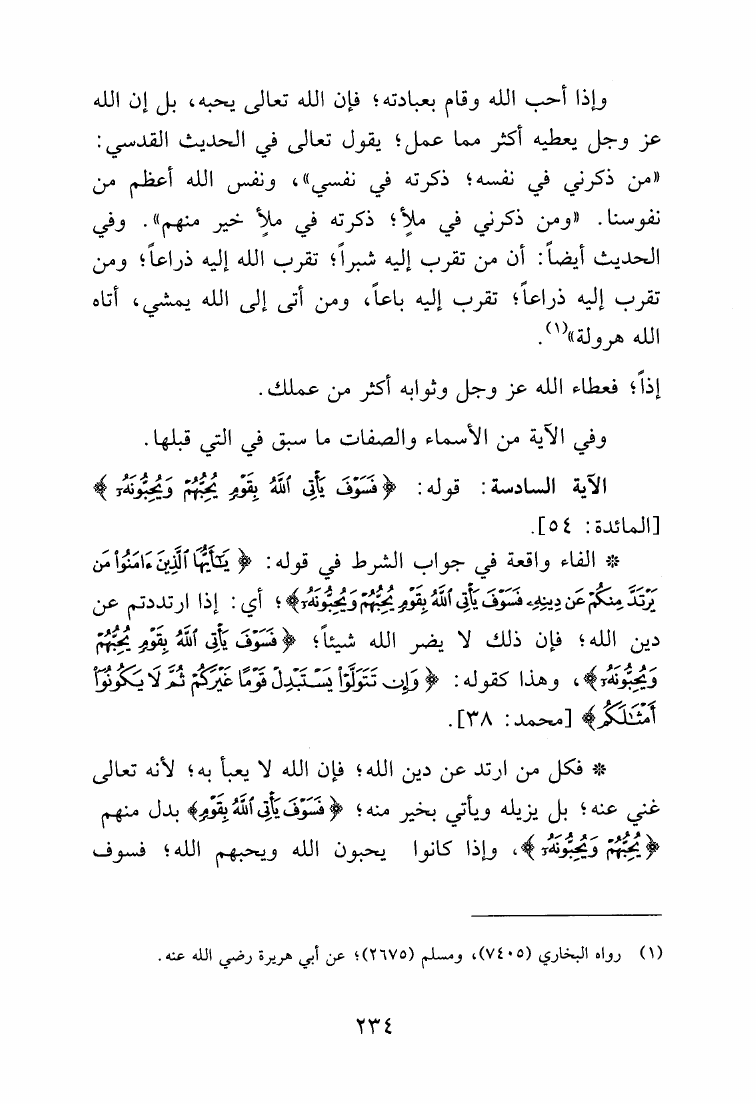 وإذا أحب الله وقام بعبادته؛ فإن الله تعالى يحبه، بل إن الله
عز وجل يعطيه أكثر مما عمل؛ يقول تعالى في الحديث القدسي:
«من ذكرني في نفسه؛ ذكرته في نفسي»، ونفس الله أعظم من
نفوسنا. «ومن ذكرني في ملأٍ؛ ذكرته في ملأٍ خير منهم». وفي
الحديث أيضاً: أن من تقرب إليه شبراً؛ تقرب الله إليه ذراعاً؛ ومن
تقرب إليه ذراعاً؛ تقرب إليه باعاً، ومن أتى إلى الله يمشي، أتاه
الله هرولة»(١).
إذاً؛ فعطاء الله عز وجل وثوابه أكثر من عملك.
وفي الآية من الأسماء والصفات ما سبق في التي قبلها.
الآية السادسة: قوله: ﴿فَسَوْفَ يَأْتِي اللَّهُ بِقَوْمٍ يُحِبُّهُمْ وَيُحِبُّونَهُۥ﴾
[المائدة: ٥٤].
* الفاء واقعة في جواب الشرط في قوله: ﴿يَٰٓأَيُّهَا الَّذِينَ ءَامَنُوا۟ مَن
يَرْتَدَّ مِنكُمْ عَن دِينِهِۦ فَسَوْفَ يَأْتِي اللَّهُ بِقَوْمٍ يُحِبُّهُمْ وَيُحِبُّونَهُۥ﴾؛ أي: إذا ارتددتم عن
دين الله؛ فإن ذلك لا يضر الله شيئاً؛ ﴿فَسَوْفَ يَأْتِي اللَّهُ بِقَوْمٍ يُحِبُّهُمْ
وَيُحِبُّونَهُۥ﴾، وهذا كقوله: ﴿وَإِن تَتَوَلَّوْا۟ يَسْتَبْدِلْ قَوْمًا غَيْرَكُمْ ثُمَّ لَا يَكُونُوٓا۟
أَمْثَٰلَكُم﴾ [محمد: ٣٨].
* فكل من ارتد عن دين الله؛ فإن الله لا يعبأ به؛ لأنه تعالى
غني عنه؛ بل يزيله ويأتي بخير منه؛ ﴿فَسَوْفَ يَأْتِي اللَّهُ بِقَوْمٍ﴾ بدل منهم
﴿يُحِبُّهُمْ وَيُحِبُّونَهُۥ﴾، وإذا كانوا يحبون الله ويحبهم الله؛ فسوف
(١) رواه البخاري (٧٤٠٥)، ومسلم (٢٦٧٥)؛ عن أبي هريرة رضي الله عنه.
٢٣٤